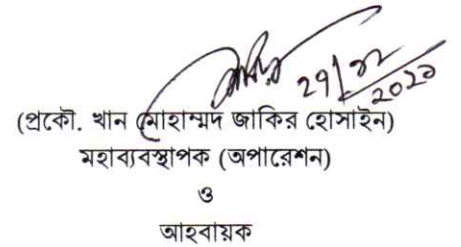 ২৭/১২
২০২১
(প্রকৌ. খান মোহাম্মদ জাকির হোসাইন)
মহাব্যবস্থাপক (অপারেশন)
ও
আহবায়ক